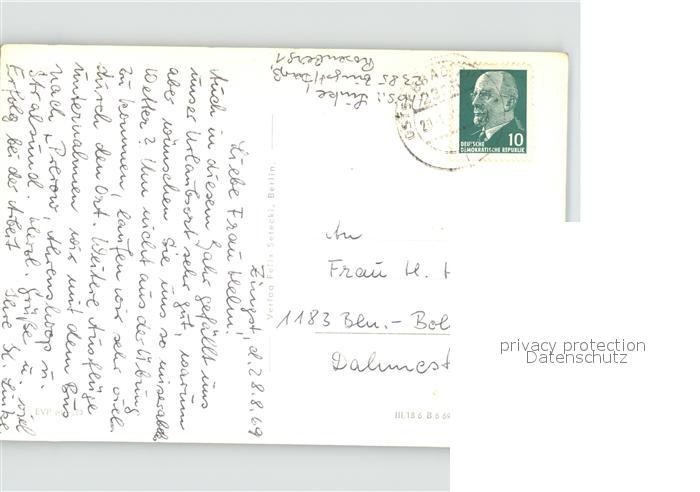 Zingst, d. 28.8.69
Liebe Frau Helm!
Auch in diesem Jahr gefällt uns
unser Urlaubsort sehr gut, warum
aber wünschen Sie uns so miserables
Wetter? Um nicht aus der Übung
zu kommen, laufen wir sehr viel
durch den Ort. Weitere Ausflüge
unternahmen wir mit dem Bus
nach Prerow, Ahrenshoop u.
Stralsund. Herzl. Grüße u. viel
Erfolg bei der Arbeit Ihre H. Linke.
Abs.: Linke,
2385 Zingst/Darß
Rosenberg 1
Verlag Felix Setecki, Berlin
DEUTSCHE
DEMOKRATISCHE REPUBLIK
10
An
Frau H. H
1183 Bln.-Boh
Dahmest
EVP
III 18 6 B 6 69
privacy protection
Datenschutz